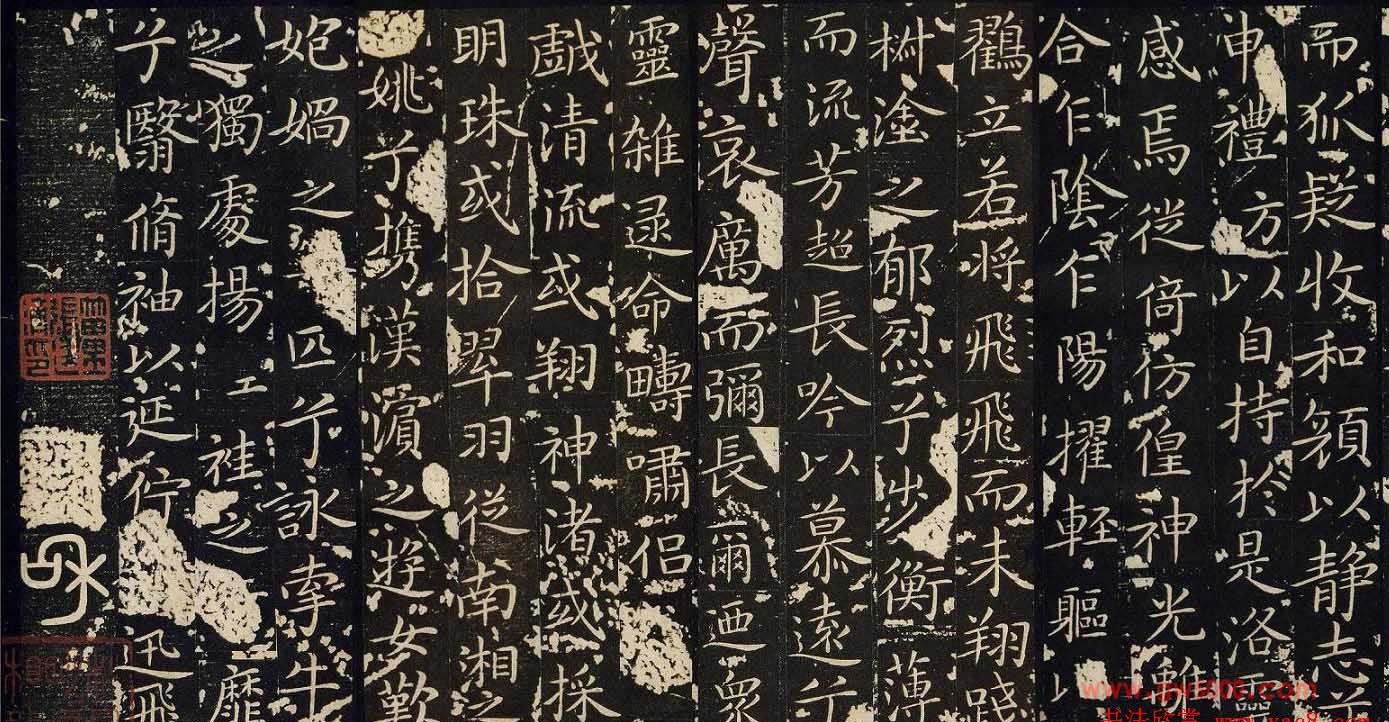 而狐疑收和顔以静志兮
申禮方以自持於是洛靈
感焉徙倚仿偟神光離
合乍陰乍陽擢輕軀以
鶴立若將飛飛而未翔踐
椒塗之郁烈兮步衡薄
而流芳超長吟以慕遠兮
聲哀厲而彌長爾迺眾
靈雜遝命疇嘯侶
戯清流或翔神渚或採
明珠或拾翠羽從南湘之
姚兮携漢濱之遊女歎
媧之匹兮詠牽牛
之獨處揚袿之靡
兮翳脩袖以延佇迅飛
书法欣赏